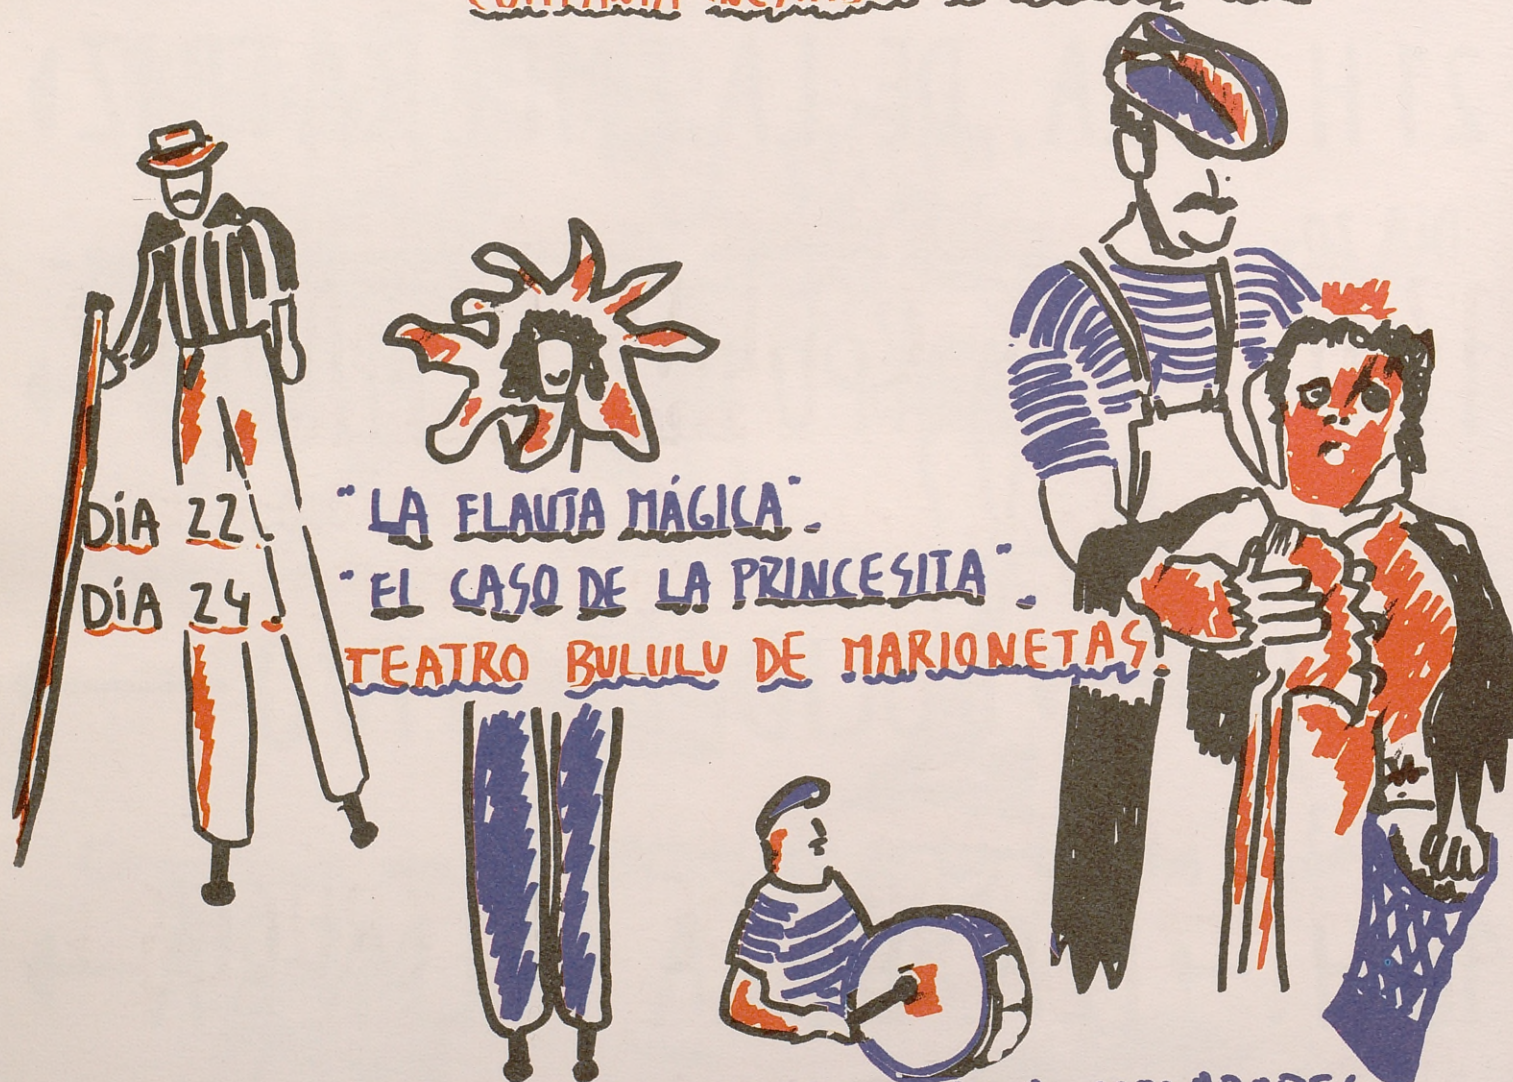 DÍA 22. "LA FLAUTA MÁGICA".
DÍA 24. "EL CASO DE LA PRINCESITA".
TEATRO BULULU DE MARIONETAS.